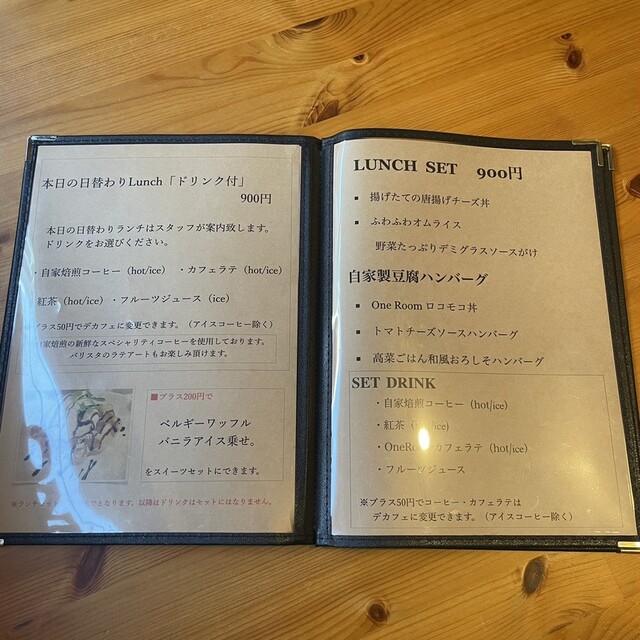 本日の日替わりLunch「ドリンク付」
900円
本日の日替わりランチはスタッフが案内致します。
ドリンクをお選びください。
・自家焙煎コーヒー（hot/ice） ・カフェラテ（hot/ice）
紅茶（hot/ice）・フルーツジュース（ice）
プラス50円でデカフェに変更できます。（アイスコーヒー除く）
家焙煎の新鮮なスペシャリティコーヒーを使用しております。
バリスタのラテアートもお楽しみ頂けます。
■プラス200円で
ベルギーワッフル
バニラアイス乗せ。
をスイーツセットにできます。
※ランチ でとなります。以降はドリンクはセットにはなりません。
LUNCH SET 900円
▪ 揚げたての唐揚げチーズ丼
▪ ふわふわオムライス
野菜たっぷりデミグラスソースがけ
自家製豆腐ハンバーグ
▪ One Room ロコモコ丼
▪ トマトチーズソースハンバーグ
▪ 高菜ごはん和風おろしそハンバーグ
SET DRINK
・自家焙煎コーヒー（hot/ice）
・紅茶（hot/ice）
・OneRoomカフェラテ（hot/ice）
・フルーツジュース
※プラス50円でコーヒー・カフェラテは
デカフェに変更できます。（アイスコーヒー除く）